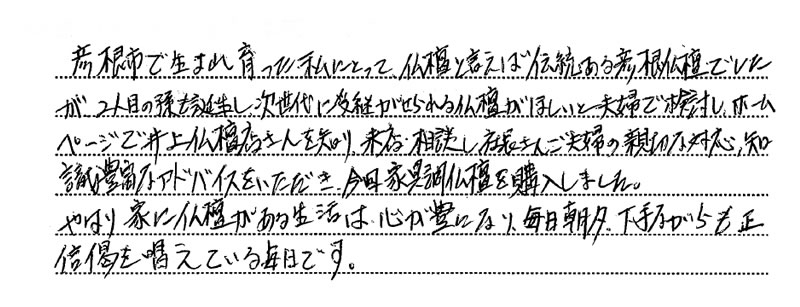 彦根市で生まれ育った私にとって、仏壇と言えば伝統ある彦根仏壇でした
が、2人目の孫も誕生し、次世代に受継がせられる仏壇がほしいと夫婦で検討し、ホーム
ページで井上仏壇店さんを知り、来店・相談し、店長さんご夫婦の親切な対応、知
識豊富なアドバイスをいただき、今回家具調仏壇を購入しました。
やはり家に仏壇がある生活は、心が豊になり、毎日朝夕、下手ながらも正
信偈を唱えている毎日です。